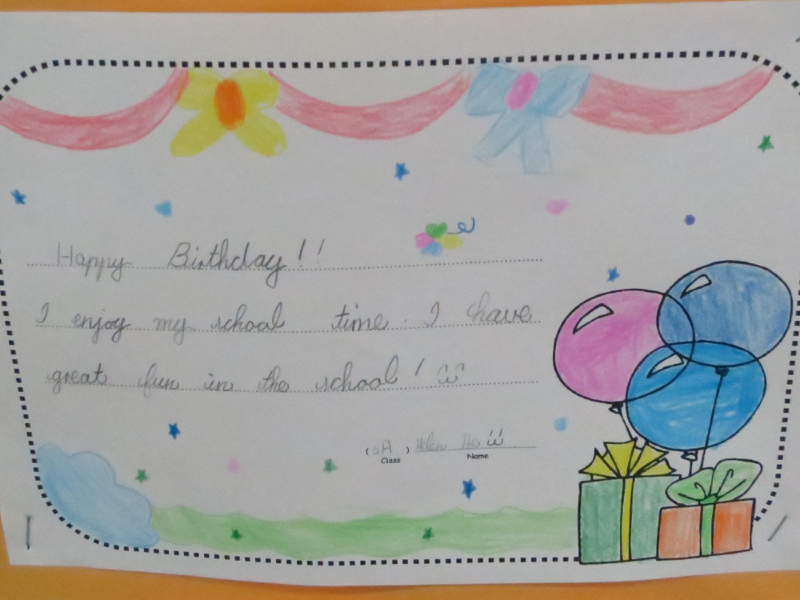 Happy Birthday!!
I enjoy my school time. I have
great fun in the school!
A
Helen
Class
Name